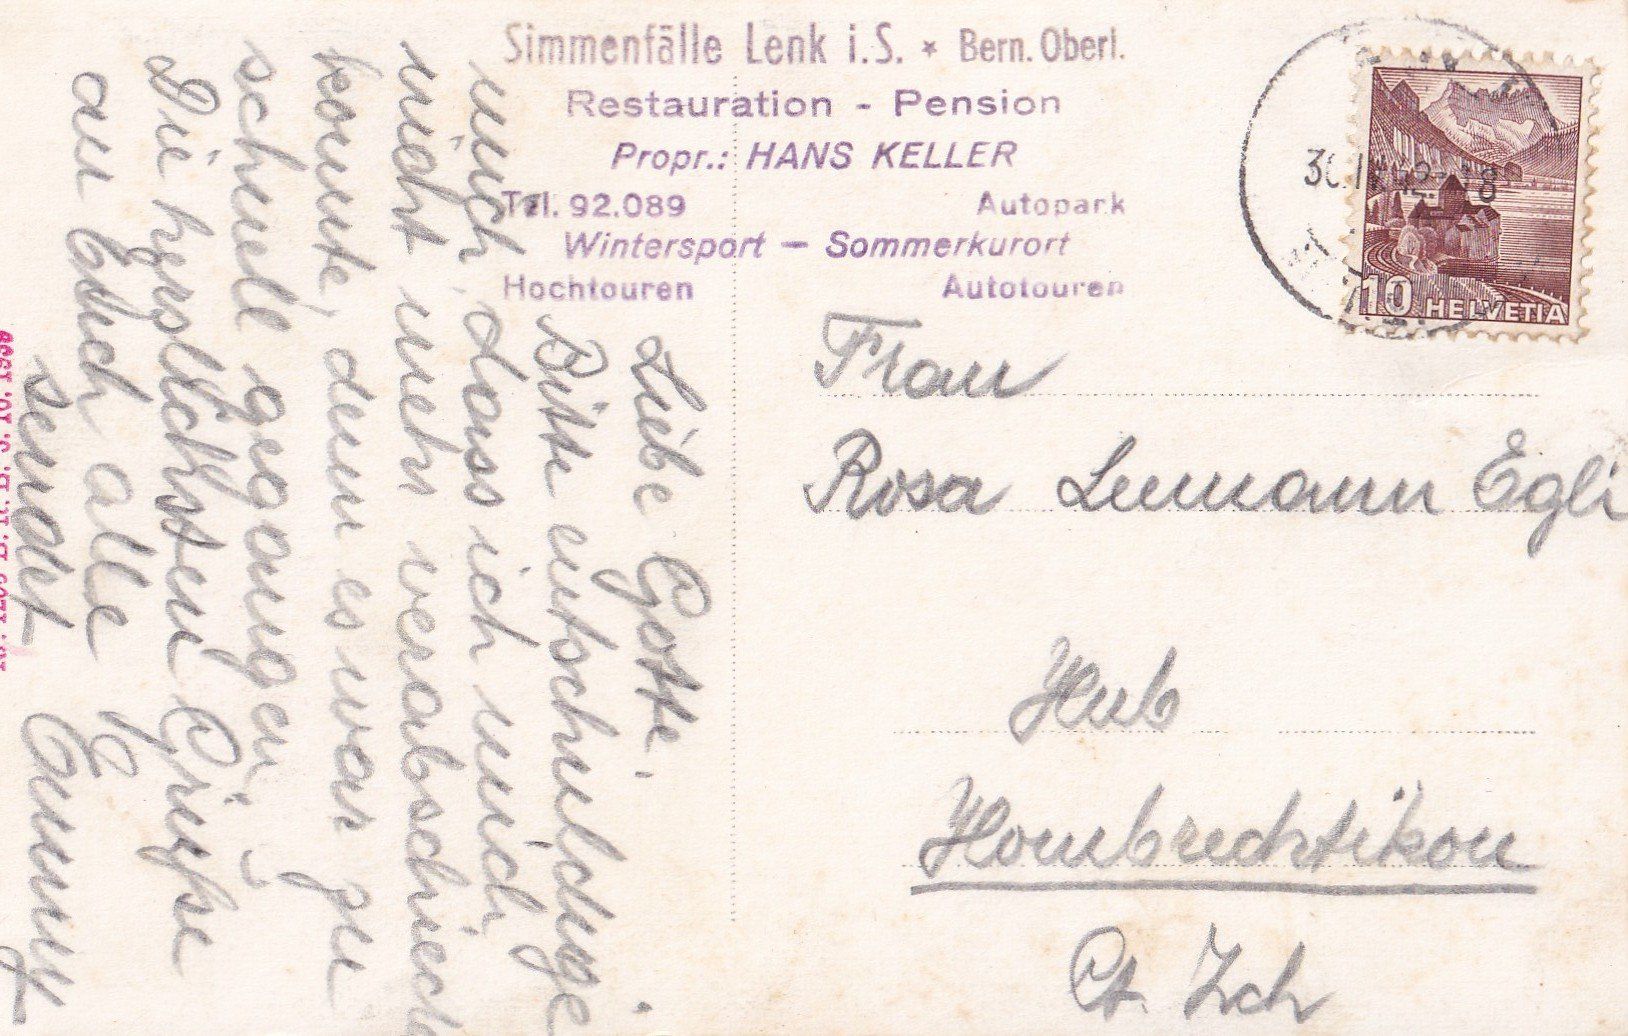 Simmenfälle Lenk i.S. * Bern. Oberl.
Restauration - Pension
Propr.: HANS KELLER
Tel. 92.089 Autopark
Wintersport — Sommerkurort
Hochtouren Autotouren
10 HELVETIA
Liebe Gotte.
Bitte entschuldige
mich dass ich mich
nicht mehr verabschied
konnte, denn es war zu
schnell gegangen.
Die herzlichsten Grüsse
an Euch alle
sendet Emmy
Frau
Rosa Egli
Hub
Hombrechtikon
Ct. Zch